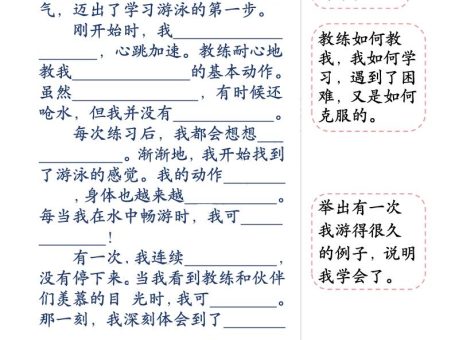 气，迈出了学习游泳的第一步。
刚开始时，我__________
________，心跳加速。教练耐心地
教我____________的基本动作。
虽然____________，有时候还
呛水，但我并没有__________。
每次练习后，我都会想想___
________。渐渐地，我开始找到
了游泳的感觉。我的动作________
____，身体也越来越__________。
每当我在水中畅游时，我可_____
________！
有一次，我连续__________，
没有停下来。当我看到教练和伙伴
们羡慕的目 光时，我可________。
那一刻，我深刻体会到了________
教练如何教
我，我如何学
习，遇到了困
难，又是如何
克服的。
举出有一次
我游得很久
的例子，说明
我学会了。